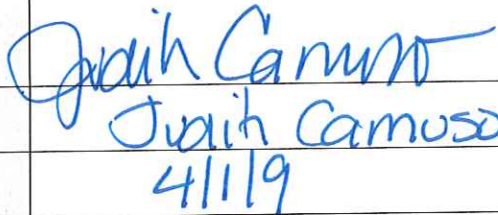 Judith Camuso
Judith Camuso
4/1/9